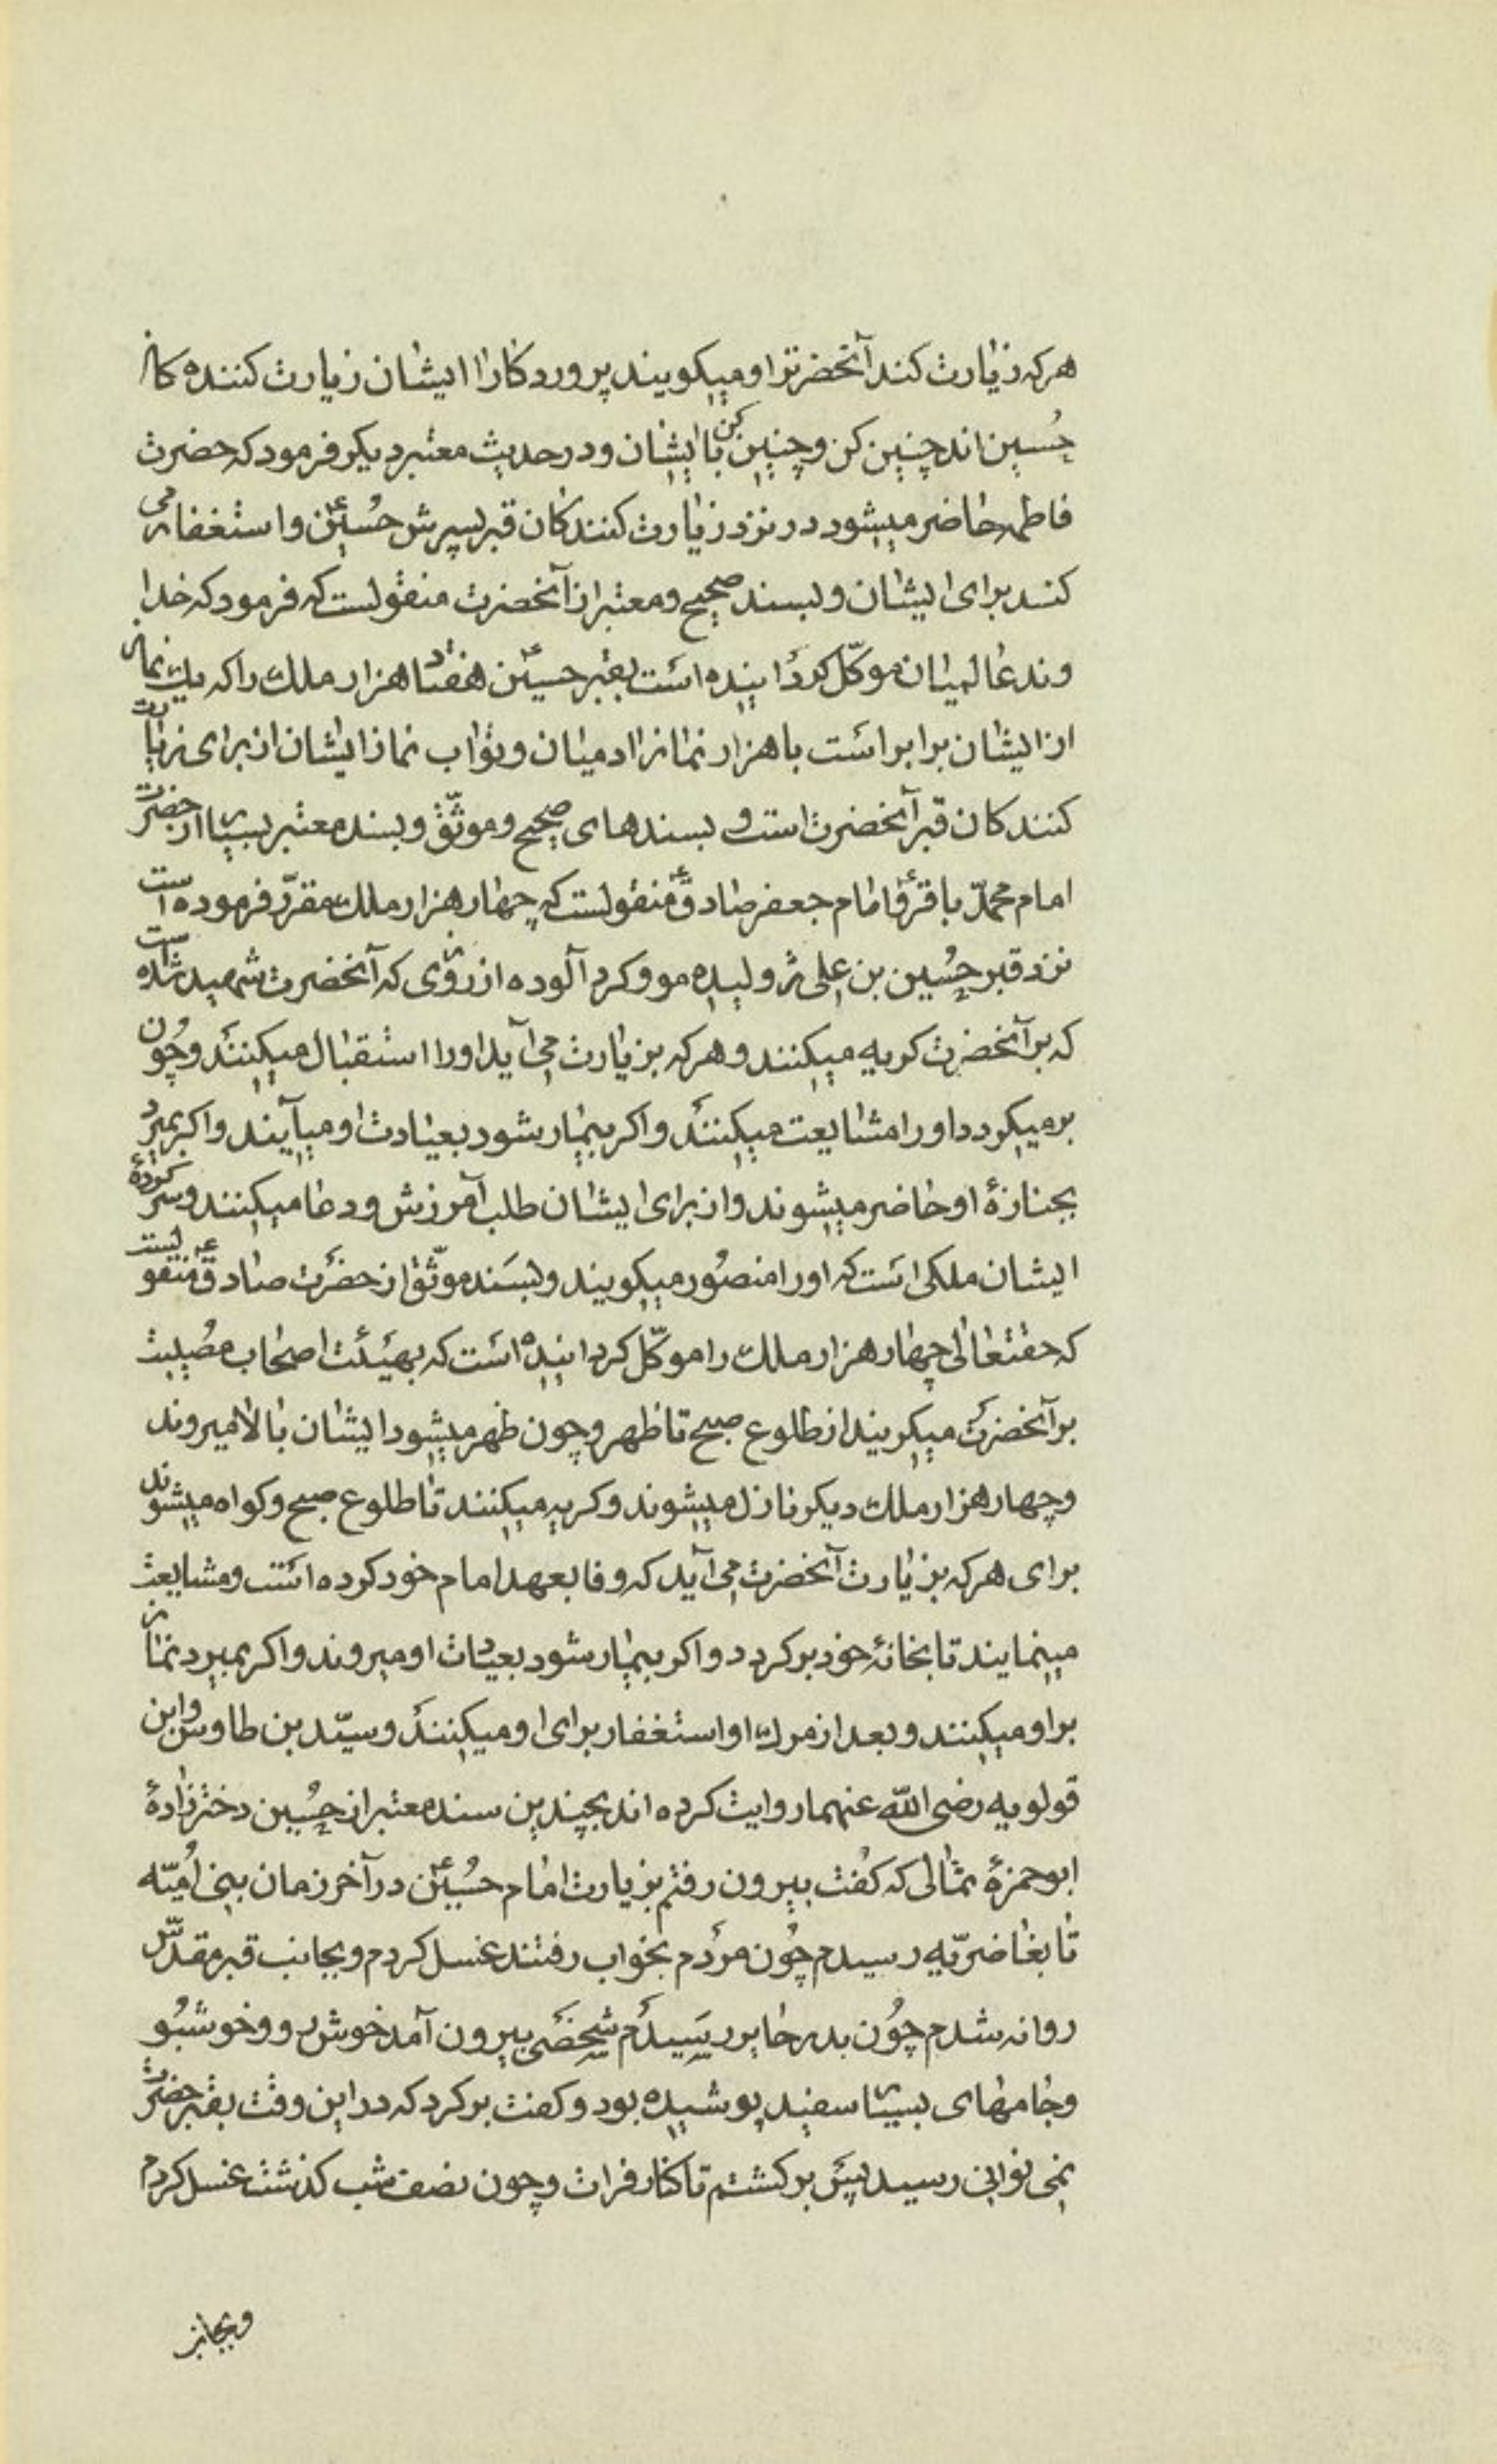 هرکه زیارت کند آنحضرترا و میکویند پروردکارا ایشان زیارت کننده کان
حسین اند چنین کن و چنین کن با ایشان و در حدیث معتبر دیکر فرمود که حضرت
فاطمه حاضر میشود در نزد زیارت کنندکان قبر پسرش حسین ع و استغفار می
کند برای ایشان و بسند صحیح و معتبر از آنحضرت منقولست که فرمود که خدا
وند عالمیان موکّل کردانیده است بقبر حسین ع هفتاد هزار ملك را که یك نماز
از ایشان برابر است با هزار نماز ادمیان و ثواب نماز ایشان از برای زیارت
کنندکان قبر آنحضرت است و بسندهای صحیح و موثّق و بسند معتبر بسیار از حضرت
امام محمّد باقر ع و امام جعفر صادق ع منقولست که چهار هزار ملك مقرّر فرموده است
نزد قبر حسین بن علی ژولیده مو و کرد آلوده از روزی که آنحضرت شهید شده است
که بر آنحضرت کریه میکنند و هرکه بزیارت می آید او را استقبال میکنند و چون
برمیکردد او را مشایعت میکنند و اکر بیمار شود بعیادت او میآیند و اکر بمیرد
بجنازهٔ او حاضر میشوند و از برای ایشان طلب آمرزش و دعا میکنند و سرکردهٔ
ایشان ملکی است که او را منصور میکویند و بسند موثّق از حضرت صادق ع منقولیست
که حقتعالی چهار هزار ملك را موکّل کردانیده است که بهیئت اصحاب مصیبت
بر آنحضرت میکریند از طلوع صبح تا ظهر و چون ظهر میشود ایشان بالا میروند
و چهار هزار ملك دیکر نازل میشوند و کریه میکنند تا طلوع صبح و کواه میشوند
برای هرکه بزیارت آنحضرت می آید که وفا بعهد امام خود کرده است و مشایعت
مینمایند تا بخانهٔ خود برکردد و اکر بیمار شود بعیادت او میروند و اکر بمیرد نماز
بر او میکنند و بعد از مرك او استغفار برای او میکنند و سیّد بن طاوس و ابن
قولویه رضی اللّه عنهما روایت کرده اند بچندین سند معتبر از حسین دختر زادهٔ
ابو حمزهٔ ثمالی که کفت بیرون رفتم بزیارت امام حسین ع در آخر زمان بنی امیّه
تا بغاضریّه رسیدم چون مردم بخواب رفتند غسل کردم و بجانب قبر مقدّس
روانه شدم چون بدر حایر رسیدم شخصی بیرون آمد خوش رو و خوشبو
و جامهای بسیار سفید پوشیده بود و کفت برکرد که در این وقت بقبر حضرت
نمی توانی رسید پس برکشتم تا کنار فرات و چون نصف شب کذشت غسل کردم
و بجانب